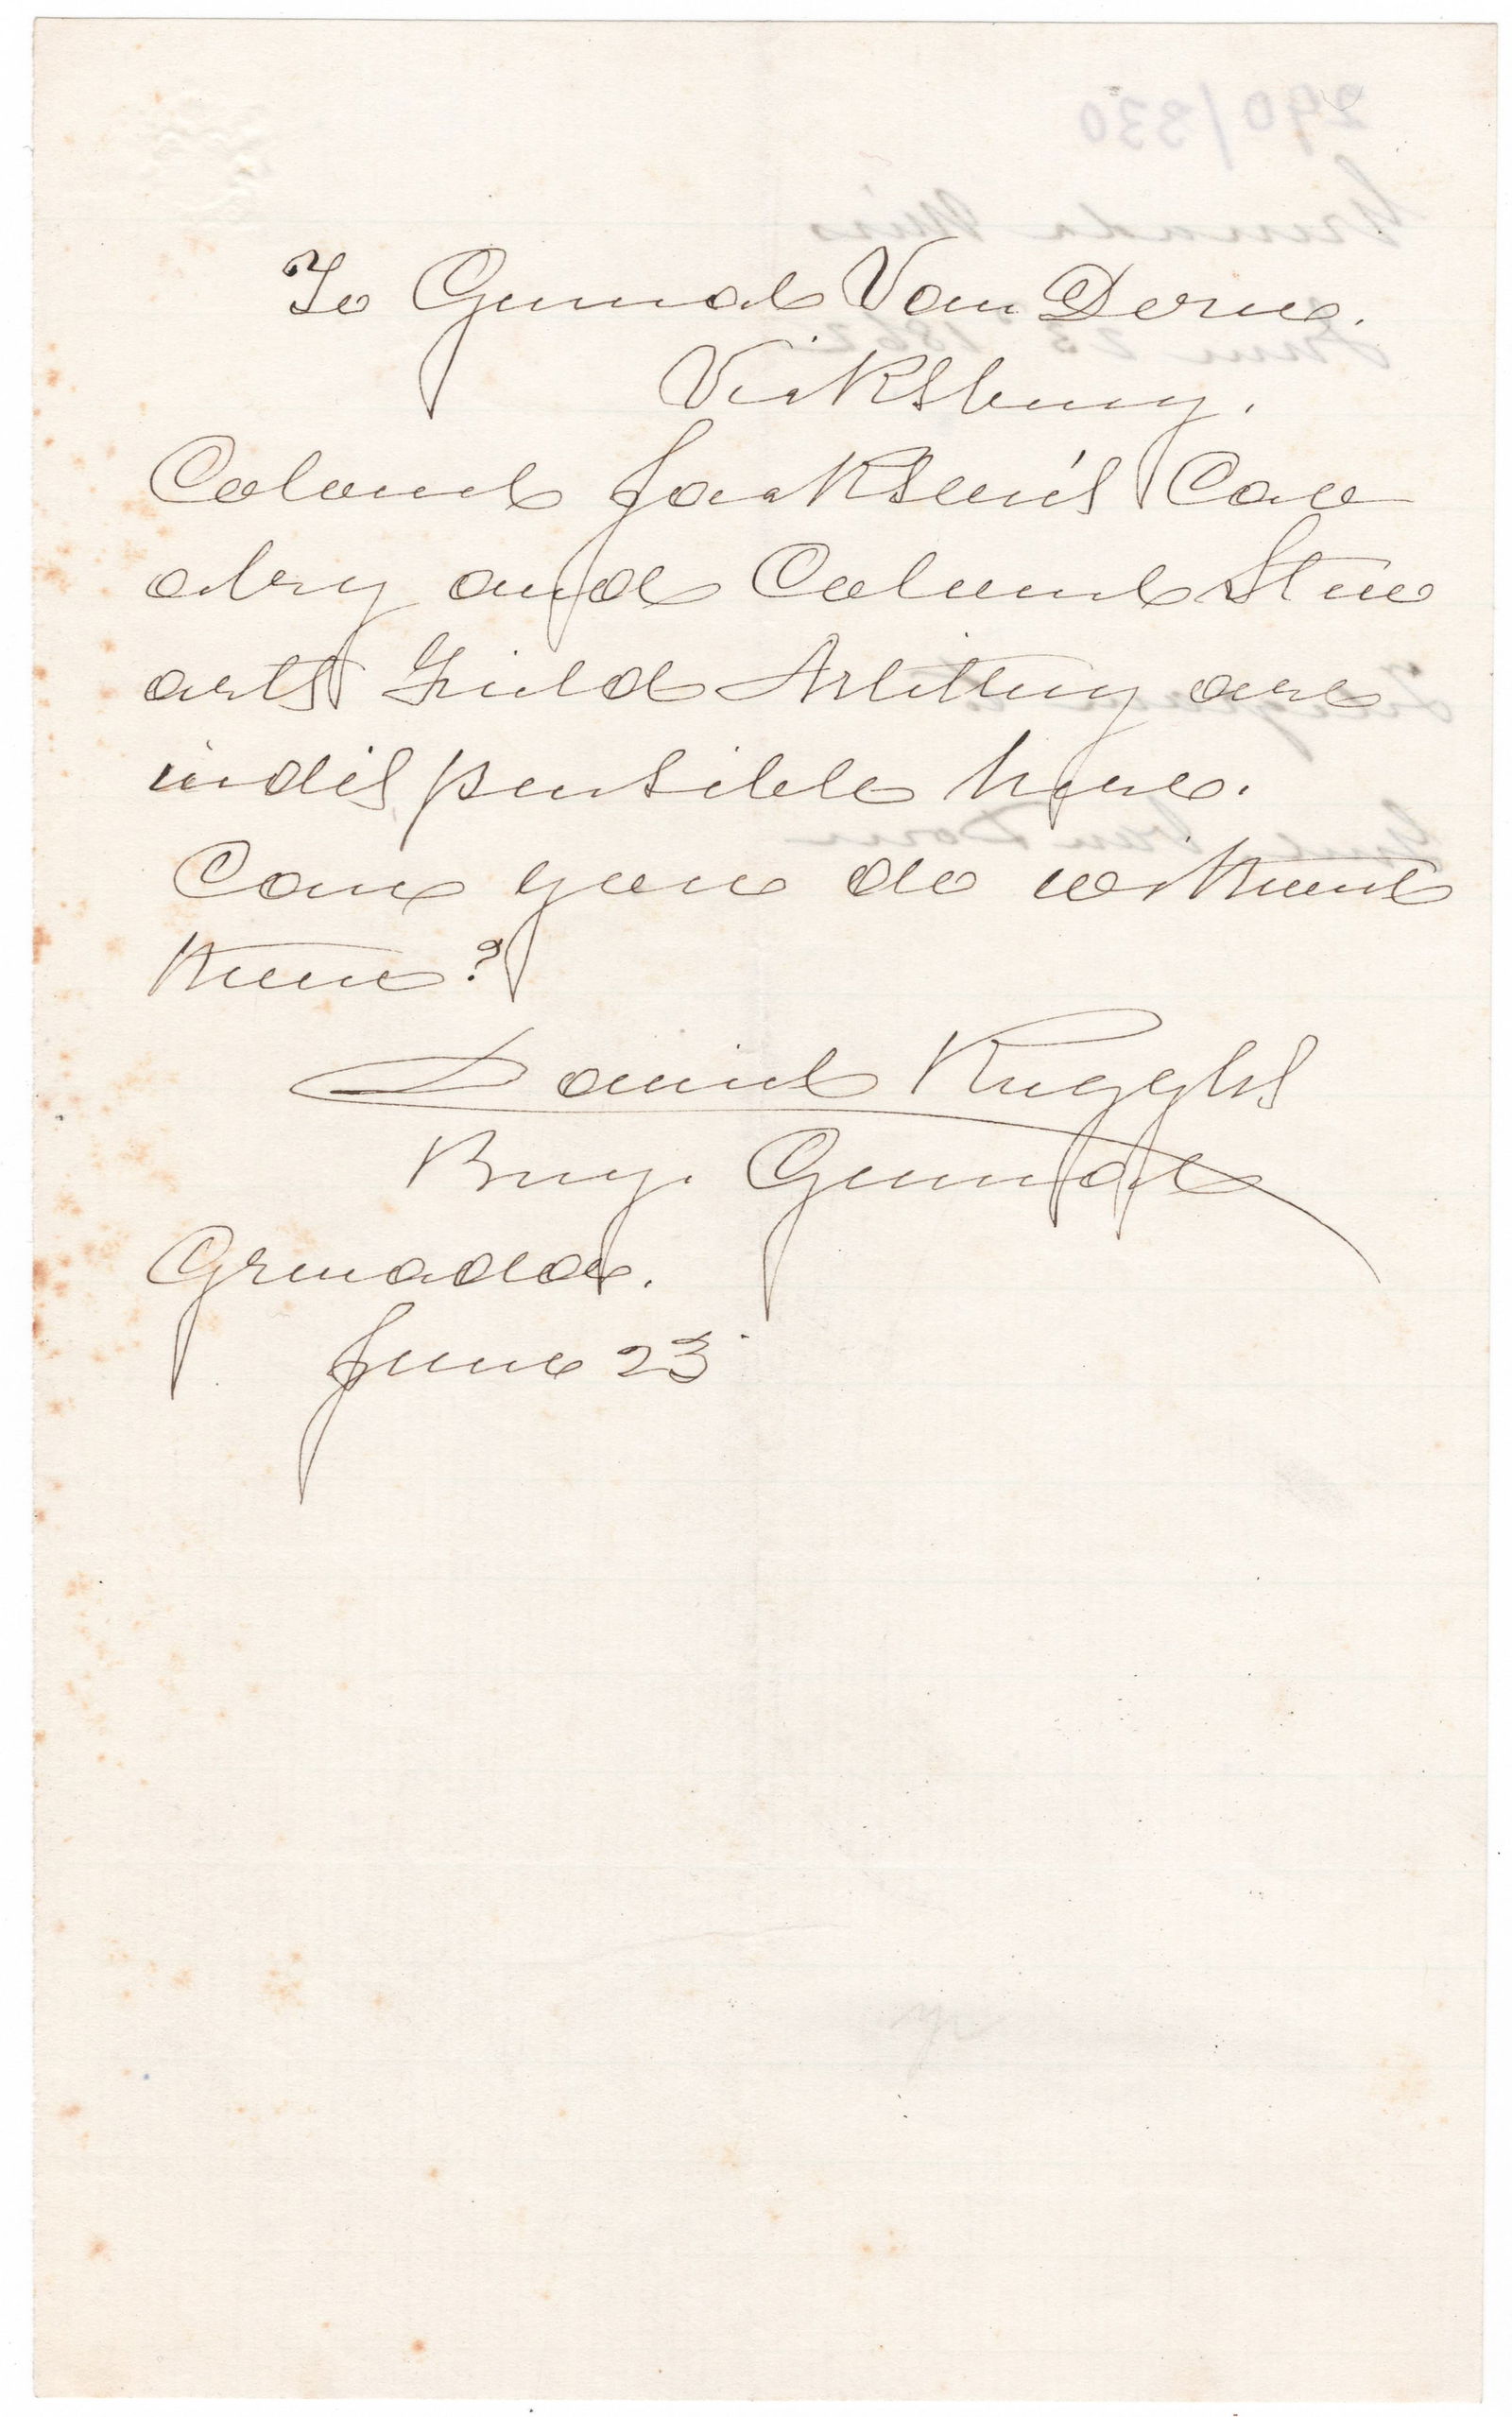 To General Van Dorn.
Vicksburg.
Colonel Jackson's Cav
alry and Colonel Stew
arts Field Artillery are
indispensible here.
Can you do without
them?
Daniel Ruggles
Brig. General
Grenada.
June 23
290/330
Grenada Miss
June 23 1862
Telegram to
Genl Van Dorn